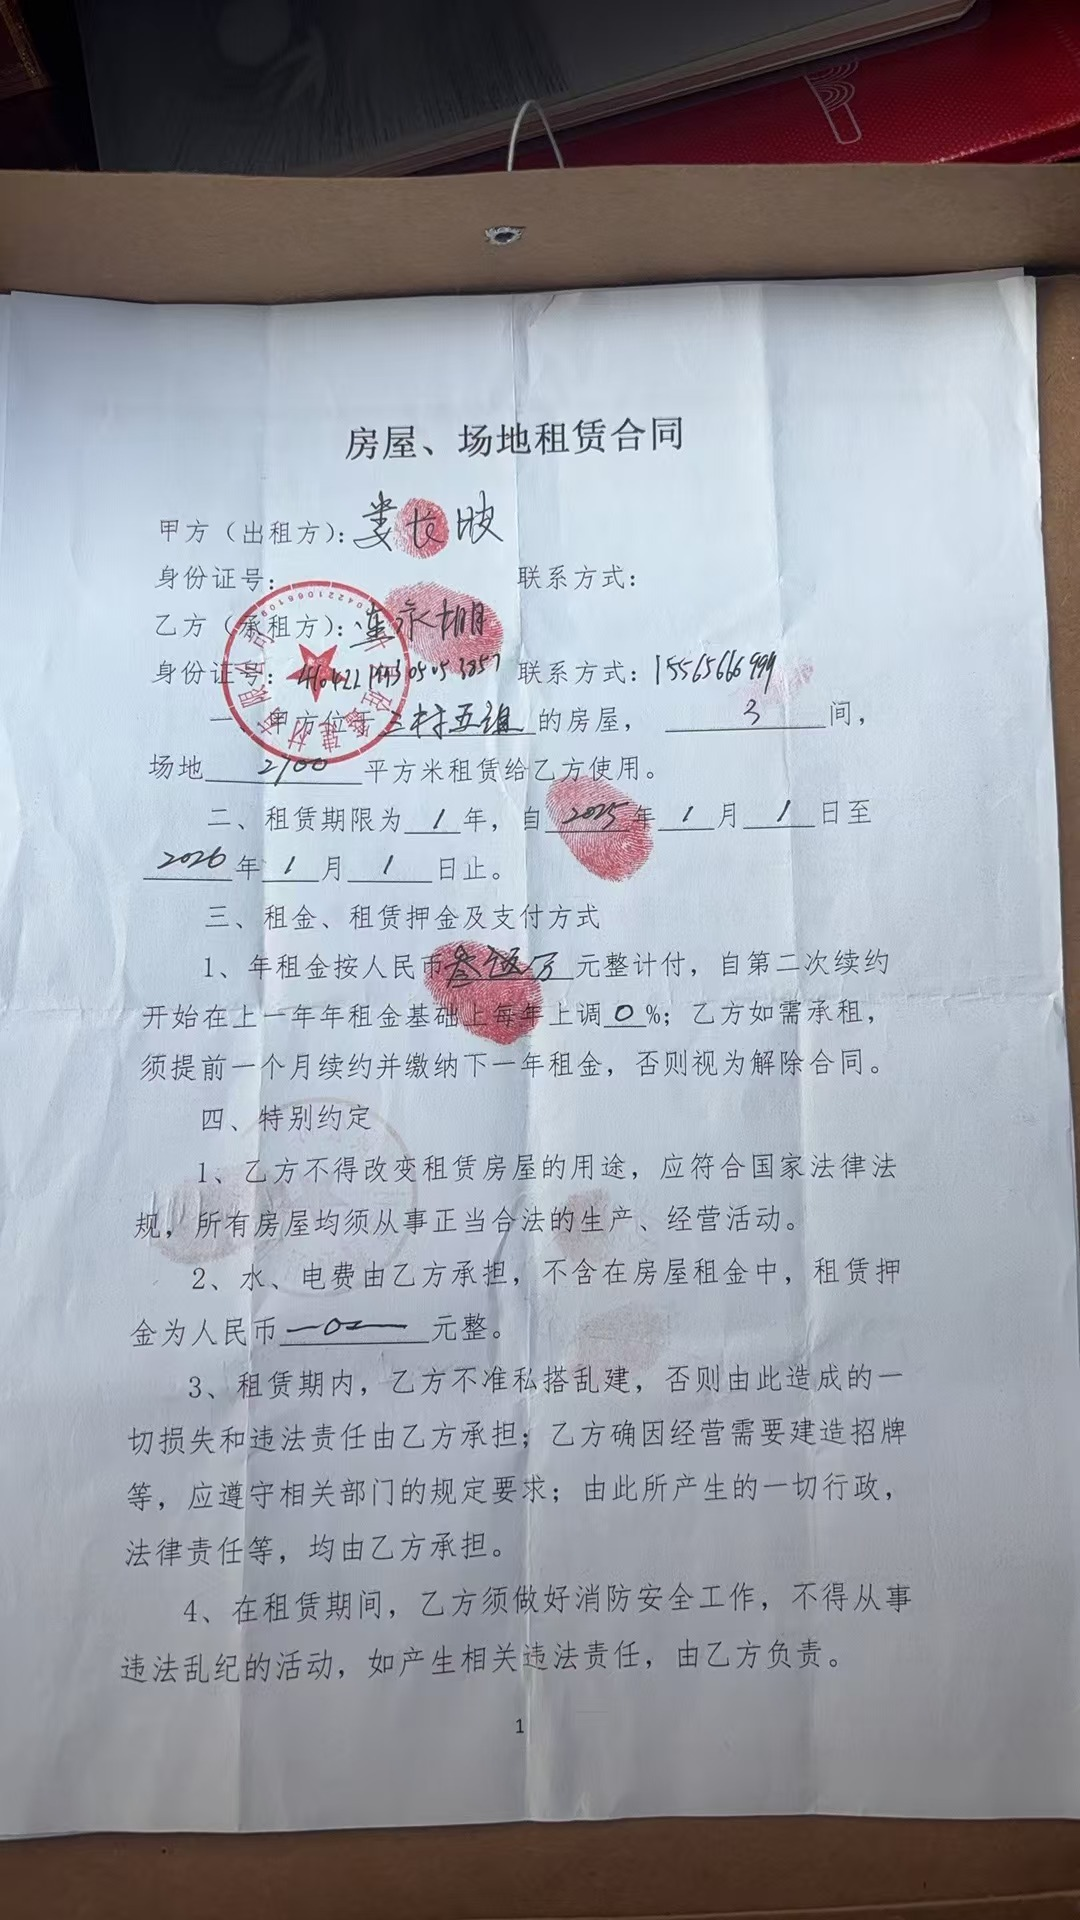 房屋、场地租赁合同
甲方（出租方）：娄长波
身份证号： 联系方式：
乙方（承租方）：连永胡
身份证号： 联系方式：15565666999
一、甲方位于三村五组的房屋，3间，
场地2100平方米租赁给乙方使用。
二、租赁期限为1年，自2025年1月1日至
2026年1月1日止。
三、租金、租赁押金及支付方式
1、年租金按人民币叁伍万元整计付，自第二次续约
开始在上一年年租金基础上每年上调0%；乙方如需承租，
须提前一个月续约并缴纳下一年租金，否则视为解除合同。
四、特别约定
1、乙方不得改变租赁房屋的用途，应符合国家法律法
规，所有房屋均须从事正当合法的生产、经营活动。
2、水、电费由乙方承担，不含在房屋租金中，租赁押
金为人民币—0—元整。
3、租赁期内，乙方不准私搭乱建，否则由此造成的一
切损失和违法责任由乙方承担；乙方确因经营需要建造招牌
等，应遵守相关部门的规定要求；由此所产生的一切行政，
法律责任等，均由乙方承担。
4、在租赁期间，乙方须做好消防安全工作，不得从事
违法乱纪的活动，如产生相关违法责任，由乙方负责。
1